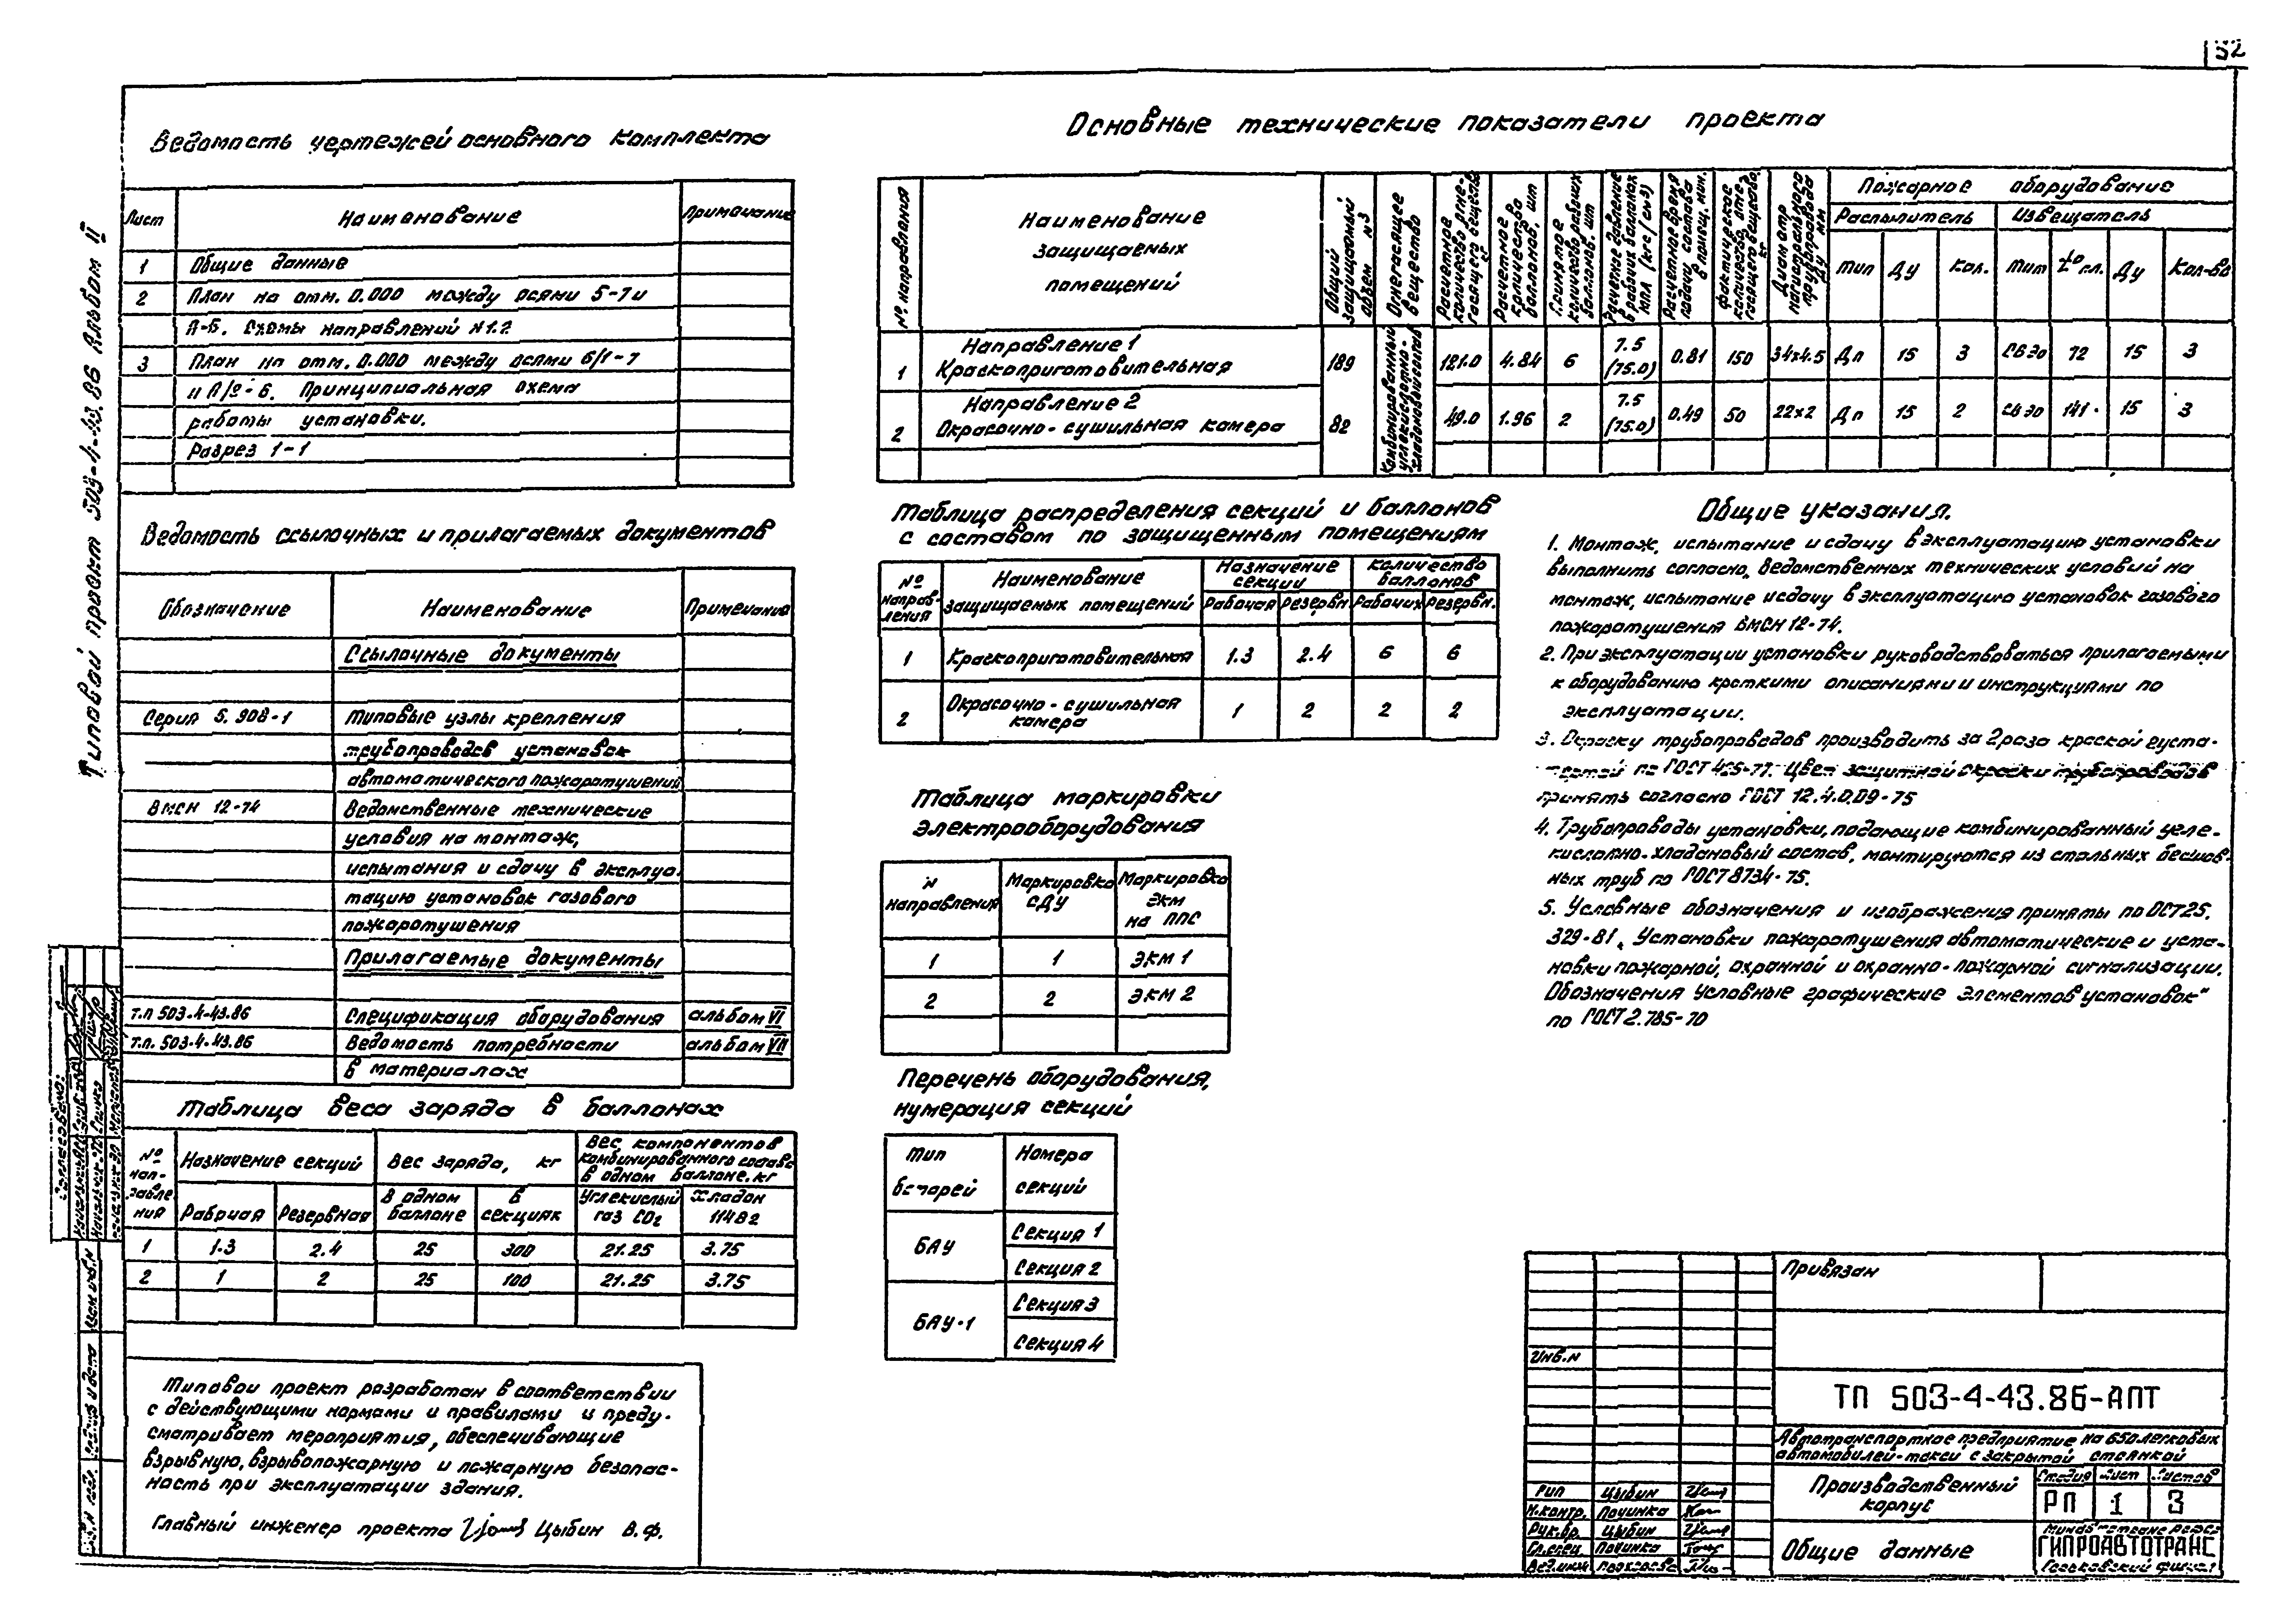 32
Типовой проект 503-4-43.86 Альбом II
Ведомость чертежей основного комплекта
Лист Наименование Примечание
1 Общие данные
2 План на отм. 0.000 между осями 5-7 и
А-Б. Схемы направлений N1.2
3 План на отм. 0.000 между осями 6/1-7
и А/0-Б. Принципиальная схема
работы установки.
Разрез 1-1
Ведомость ссылочных и прилагаемых документов
Обозначение Наименование Примечание
Ссылочные документы
Серия 5.908-1 Типовые узлы крепления
трубопроводов установок
автоматического пожаротушения
ВМСН 12-74 Ведомственные технические
условия на монтаж,
испытания и сдачу в эксплуа-
тацию установок газового
пожаротушения
Прилагаемые документы
т.п 503.4-43.86 Спецификация оборудования альбом VI
т.п. 503-4-43.86 Ведомость потребности альбом VII
в материалах
Таблица веса заряда в баллонах
№ нап-равле ния
Назначение секций Вес заряда, кг Вес компонентов комбинированного состава в одном баллоне. кг
Рабочая Резервная В одном баллоне В секциях Углекислый газ CO2 Хладон 114В2
1 1.3 2.4 25 300 21.25 3.75
2 1 2 25 100 21.25 3.75
Типовой проект разработан в соответствии
с действующими нормами и правилами и преду-
сматривает мероприятия, обеспечивающие
взрывную, взрывопожарную и пожарную безопас-
ность при эксплуатации здания.
Главный инженер проекта Цыбин В.Ф.
Основные технические показатели проекта
№ направления
Наименование защищаемых помещений
Общий защищаемый объем м3
Огнегасящее вещество
Расчетное количество огне-гасящего вещества кг
Расчетное количество баллонов, шт
Принятое количество рабочих баллонов. шт
Расчетное давление в рабочих баллонах МПА (кгс/см²)
Расчетное время подачи состава в помещ. мин.
Фактическое количество огне-гасящего вещества, кг
Диаметр магистрального трубопровода Ду мм
Пожарное оборудование
Распылитель Извещатель
Тип Ду Кол. Тип t° пл. Ду Кол-во
Комбинированный углекислотно-хладоновый состав
1 Направление 1 Краскоприготовительная 189 121.0 4.84 6 7.5 (75.0) 0.81 150 34х4.5 Дп 15 3 СВЭО 72 15 3
2 Направление 2 Окрасочно-сушильная камера 82 49.0 1.96 2 7.5 (75.0) 0.49 50 22х2 Дп 15 2 СВЭО 141 15 3
Таблица распределения секций и баллонов
с составом по защищенным помещениям
№ направ-ления Наименование защищаемых помещений Назначение секции Количество баллонов
Рабочая Резервн. Рабочих Резервн.
1 Краскоприготовительная 1.3 2.4 6 6
2 Окрасочно-сушильная камера 1 2 2 2
Таблица маркировки
электрооборудования
N направления Маркировка СДУ Маркировка ЭКМ на ППС
1 1 ЭКМ 1
2 2 ЭКМ 2
Перечень оборудования,
нумерация секций
Тип батарей Номера секций
БАУ Секция 1
Секция 2
БАУ-1 Секция 3
Секция 4
Общие указания.
1. Монтаж, испытание и сдачу в эксплуатацию установки
выполнить согласно. Ведомственных технических условий на
монтаж, испытание и сдачу в эксплуатацию установок газового
пожаротушения ВМСН 12-74.
2. При эксплуатации установки руководствоваться прилагаемыми
к оборудованию краткими описаниями и инструкциями по
эксплуатации.
3. Окраску трубопроводов производить за 2 раза краской густо-
тертой по ГОСТ Цвет защитной окраски трубопроводов
принять согласно ГОСТ 12.4.009-75
4. Трубопроводы установки, подающие комбинированный угле-
кислотно-хладоновый состав, монтируются из стальных бесшов-
ных труб по ГОСТ 8734-75.
5. Условные обозначения и изображения приняты по ОСТ 25.
329-81 „Установки пожаротушения автоматические и уста-
новки пожарной, охранной и охранно-пожарной сигнализации.
Обозначения условные графические элементов установок"
по ГОСТ 2.785-70
Привязан
Инв.N
ТП 503-4-43.86-АПТ
Автотранспортное предприятие на 650 легковых
автомобилей-такси с закрытой стоянкой
Производственный корпус
Стадия Лист Листов
РП 1 3
Общие данные
ГИПРОАВТОТРАНС
ГИП Цыбин
Н.контр. Починка
Рук.бр. Цыбин
Гл.спец. Починка
Вед.инж
Согласовано: